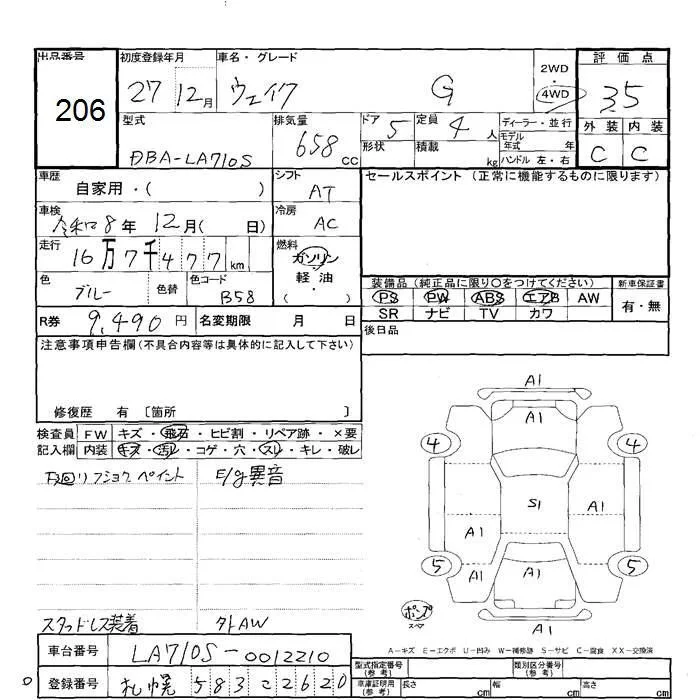 出品番号 206
初度登録年月 27 12月
車名・グレード ウェイク G
2WD・4WD
評価点 3.5
外装 内装
C C
型式 DBA-LA710S
排気量 658 cc
ドア 5
形状
定員 4 人
積載 kg
ディーラー・並行
モデル年式 年
ハンドル 左・右
車歴 自家用・( )
シフト AT
セールスポイント(正常に機能するものに限ります)
車検 令和8年 12月( 日)
冷房 AC
走行 16万7千477km
燃料 ガソリン・軽油・( )
色 ブルー 色替
色コード B58
装備品(純正品に限り○をつけてください)
新車保証書
PS PW ABS エアB AW
有・無
SR ナビ TV カワ
R券 9,490円 名変期限 月 日
後日品
注意事項申告欄(不具合内容等は具体的に記入して下さい)
修復歴 有 〔箇所 〕
検査員 FW キズ・飛石・ヒビ割・リペア跡・×要
記入欄 内装 キズ・汚れ・コゲ・穴・スレ・キレ・破レ
下廻リフショク ペイント
E/g異音
スタッドレス装着
外AW
A1
A1
4 4
S1 A1
A1
5 5
A1 A1
ポンプ
スペア
A1
A-キズ E-エクボ U-凹み W-補修跡 S-サビ C-腐食 XX-交換済
車台番号 LA710S-0012210
登録番号 札幌 583 こ 2620
型式指定番号(参考)
類別区分番号(参考)
車庫証明用(参考) 長さ cm 幅 cm 高さ cm